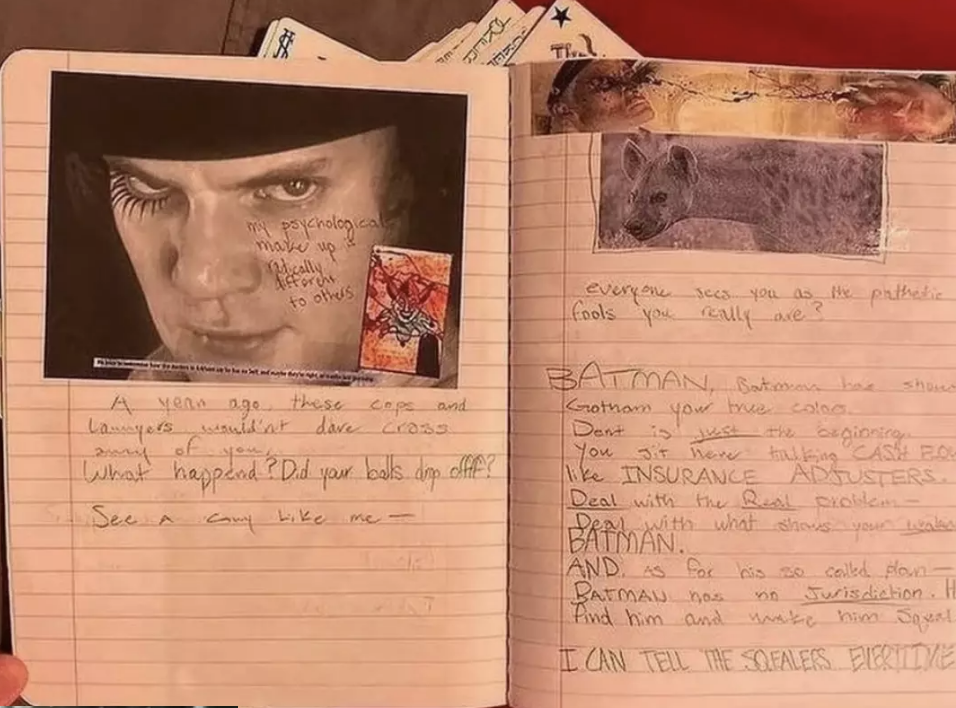 The
my psychological
make up is
radically
different
to others
A year ago, these cops and
Lawyers wouldn't dare cross
any of you,
What happend? Did your balls drop offf?
See a guy like me —
everyone sees you as the phthetic
fools you really are?
BATMAN, Batman has shown
Gotham your true colors.
Dent is just the beginning.
You sit here talking CASH FLOW
like INSURANCE ADJUSTERS.
Deal with the Real problem —
Deal with what shows your
BATMAN.
AND, as for his so called plan —
BATMAN has no Jurisdiction. H
find him and make him Squeal
I CAN TELL THE SQEALERS EVERTIME